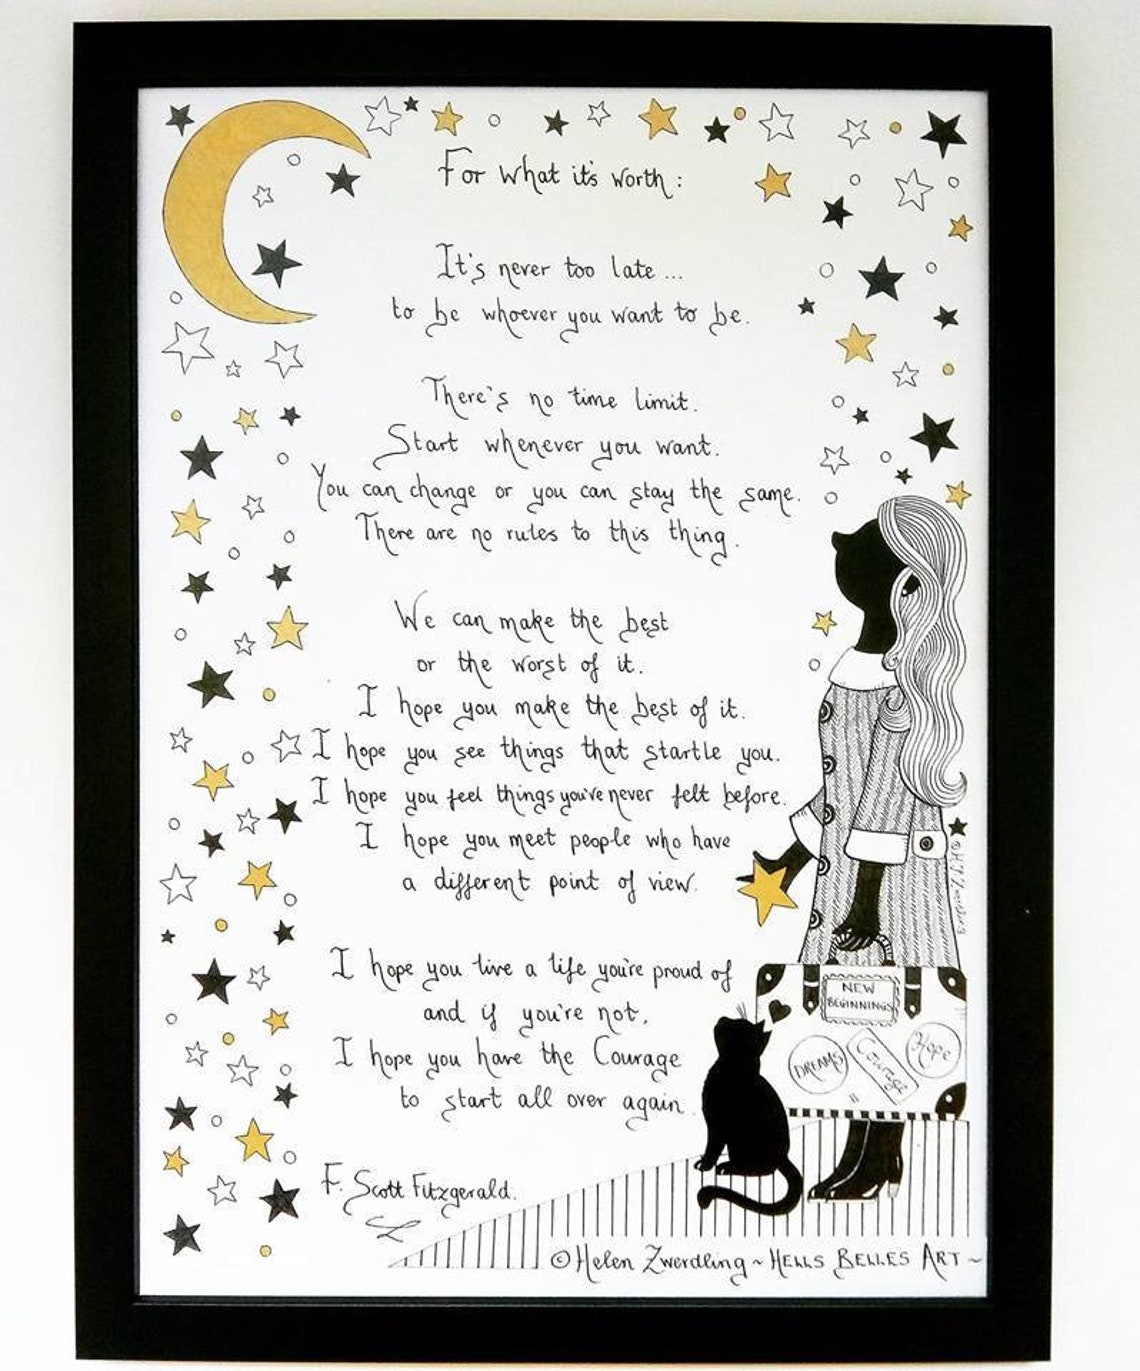 For what it's worth :
It's never too late ...
to be whoever you want to be.
There's no time limit.
Start whenever you want.
You can change or you can stay the same.
There are no rules to this thing.
We can make the best
or the worst of it.
I hope you make the best of it.
I hope you see things that startle you.
I hope you feel things you've never felt before.
I hope you meet people who have
a different point of view.
I hope you live a life you're proud of
and if you're not,
I hope you have the Courage
to start all over again.
F. Scott Fitzgerald.
NEW
BEGINNINGS
DREAMS
Courage
Hope
© Helen Zwerdling ~ HELLS BELLES ART ~